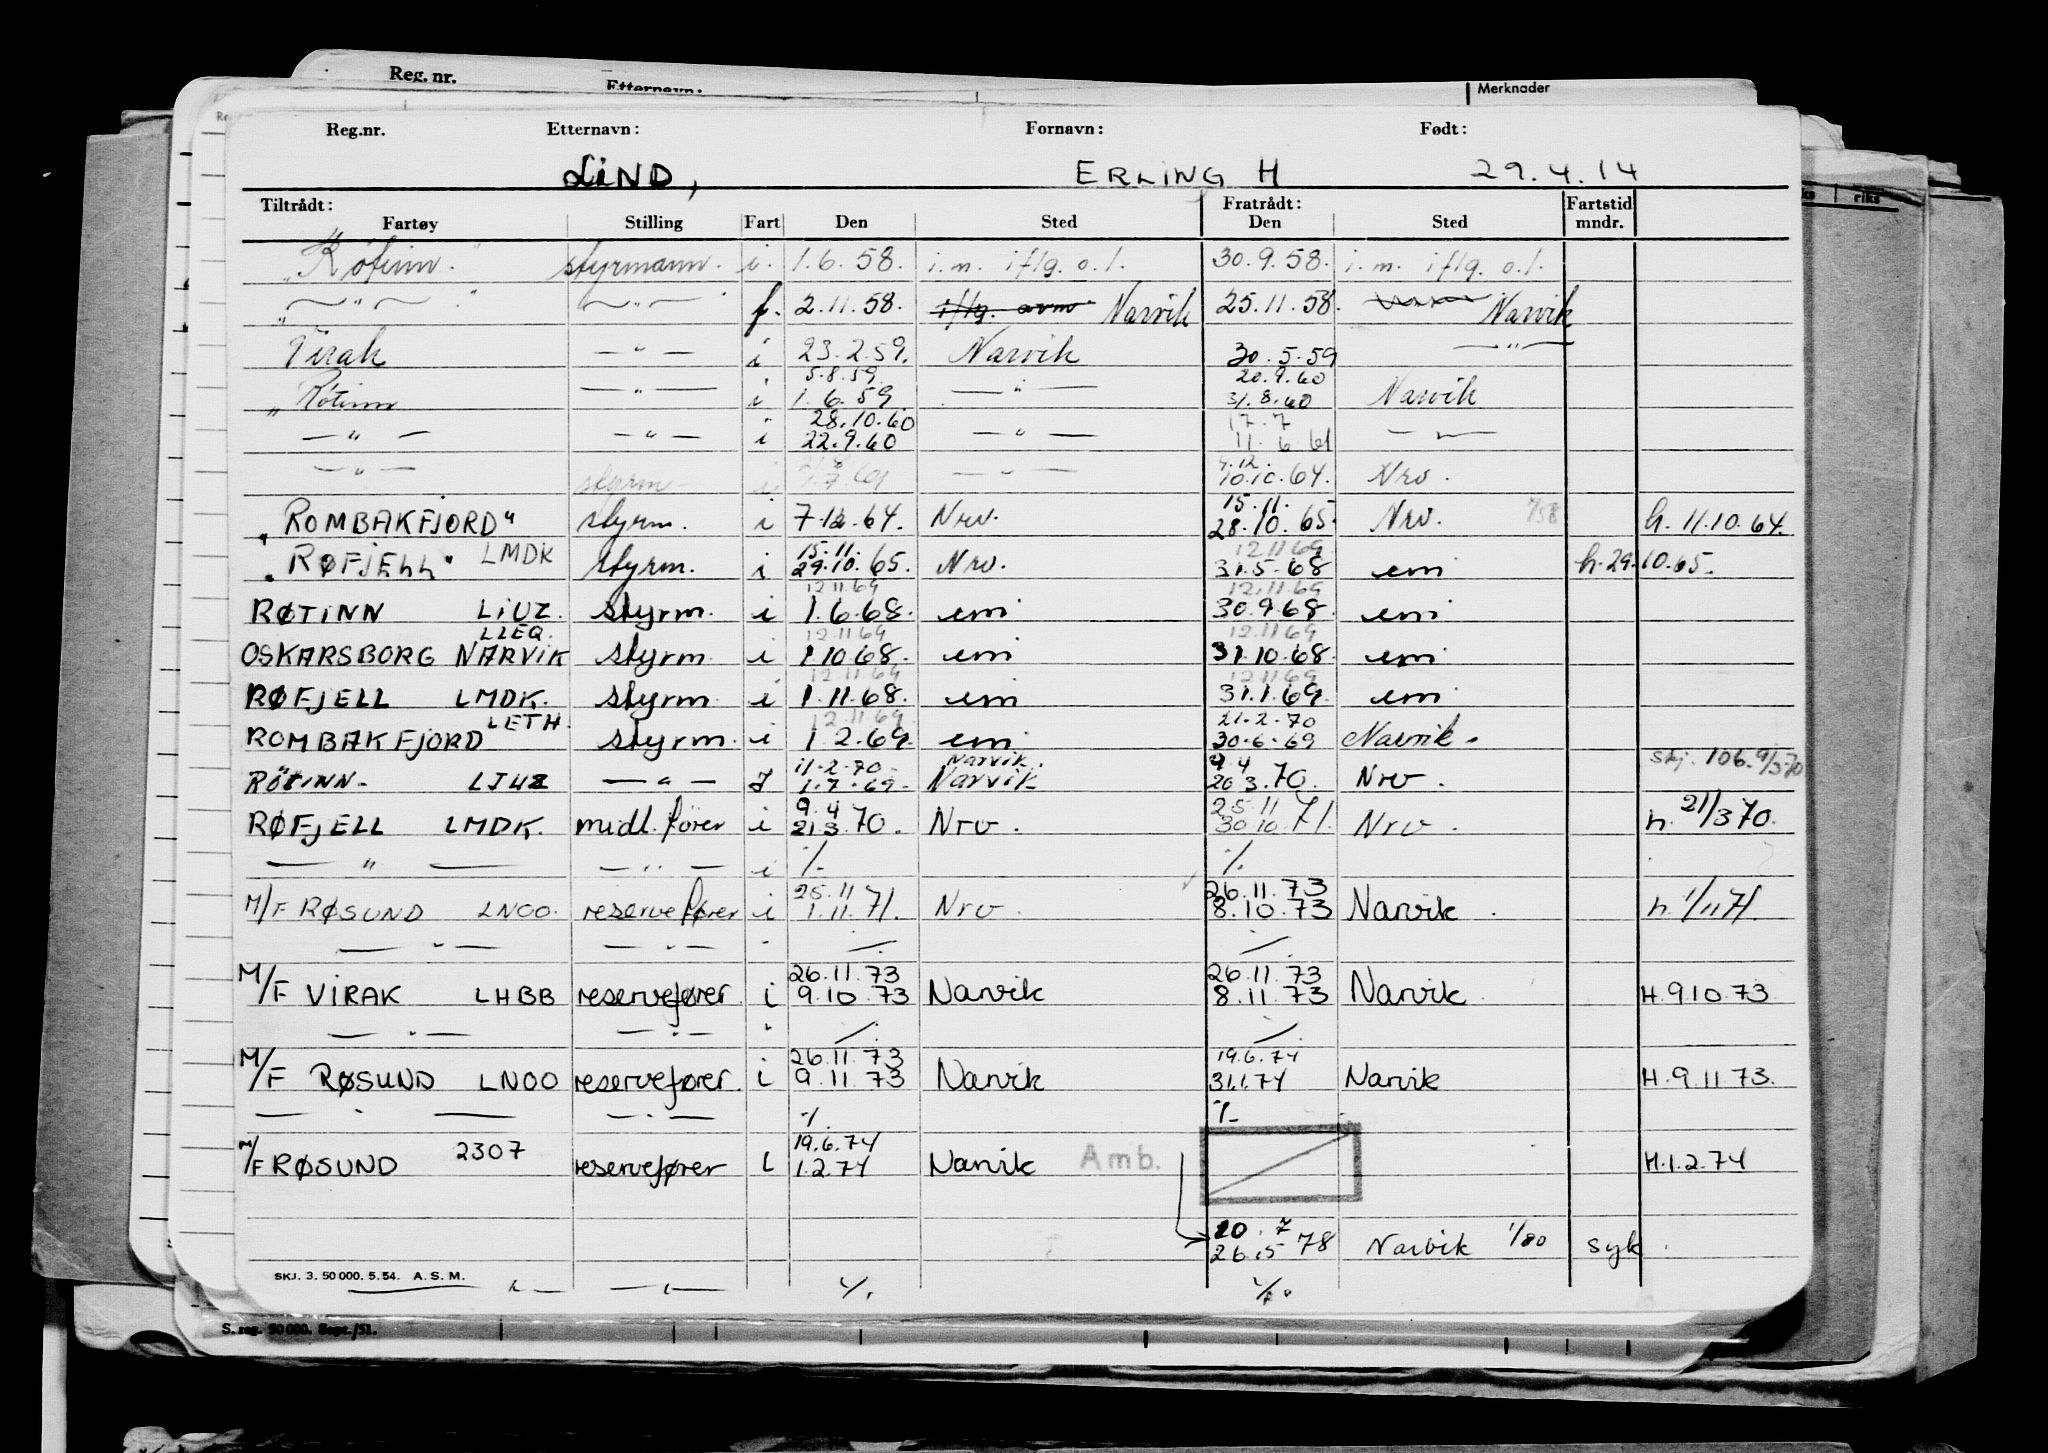 Reg. nr. Etternavn: Merknader
Reg.nr. Etternavn: Fornavn: Født:
LIND, ERLING H 29.4.14
Tiltrådt: Fratrådt: Fartstid
Fartøy Stilling Fart Den Sted Den Sted mndr.
"Røtinn" styrmann. i. 1.6.58. i.m. iflg. o.l. 30.9.58. i.m. iflg. o.l.
— " — — " — f. 2.11.58. iflg. Narvik 25.11.58. Narvik
Virak — " — i 23.2.59. Narvik 30.5.59 — " —
5.8.59 20.9.60
"Røtinn — " — i 1.6.59 — " — 31.8.60 Narvik
28.10.60 17.7
— " — — " — i 22.9.60 — " — 11.6.61 — " —
4.12.
— " — styrm — i — " — 10.10.64. Nrv.
15.11.
"ROMBAKFJORD" styrm. i 7.12.64. Nrv. 28.10.65 Nrv. h. 11.10.64.
15.11. 12.11.69
"RØFJELL" LMDK styrm. i 29.10.65. Nrv. 31.5.68 emi h.29.10.65.
12.11.69 12.11.69
RØTINN LIUZ. styrm. i 1.6.68. emi 30.9.68. emi
LZEQ. 12.11.69 12.11.69
OSKARSBORG NARVIK styrm. i 1.10.68. emi 31.10.68. emi
12.11.69 12.11.69
RØFJELL LMDK. styrm. i 1.11.68. emi 31.1.69. emi
LETH. 12.11.69. 21.2.70
ROMBAKFJORD styrm. i 1.2.69. emi 30.6.69 Narvik.
11.2.70 Narvik. 9.4 skj. 106. 9/3 70
RÖTINN LIUZ — " — I 1.7.69. Narvik 20.3.70. Nrv.
9.4 25.11
RØFJELL LMDK. midl. fører i 21.3.70. Nrv. 30.10.71. Nrv. h. 21/3 70.
— " — — " — i ⁒ ⁒
25.11 26.11.73
M/F RØSUND LNOO. reservefører i 1.11.71. Nrv. 8.10.73 Narvik. h. 1/11 71.
— " — — " — " ⁒ ⁒
26.11.73 26.11.73
M/F VIRAK LHBB reservefører i 9.10.73 Narvik 8.11.73 Narvik H.9.10.73
— " — — " — " ⁒ ⁒
26.11.73 19.6.74
M/F RØSUND LNOO reservefører. i 9.11.73 Narvik 31.1.74 Narvik H.9.11.73.
— " — — " — ⁒ ⁒
19.6.74
M/F RØSUND 2307 reservefører i 1.2.74 Narvik Amb. H.1.2.74
20.7
26.5 78 Narvik 1/80 syk.
SKJ. 3. 50 000. 5. 54. A. S. M.
— " — — " — ⁒ ⁒
S. reg. 50 000. Sept./51.